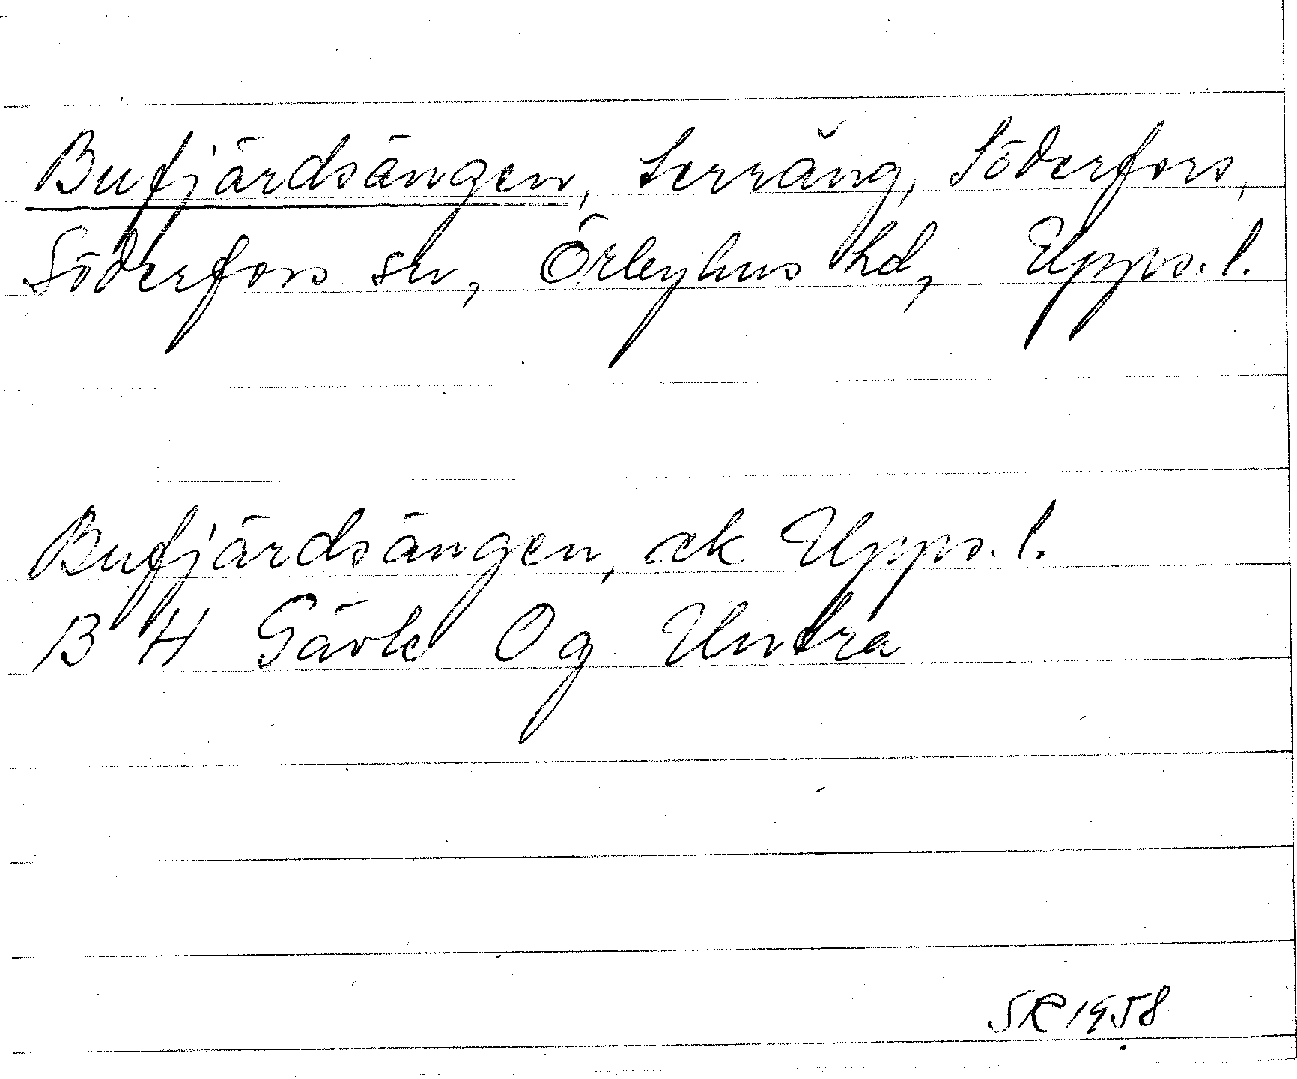 Bufjärdsängen, terräng, Söderfors,
Söderfors sn, Örbyhus hd, Upps. l.
Bufjärdsängen, ek Upps. l.
B H Gävle Og Untra
SR 1958